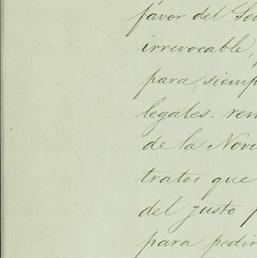 favor del Se
irrevocable,
para siemp
legales: ren
de la Novi
tratos que
del justo p
para pedir